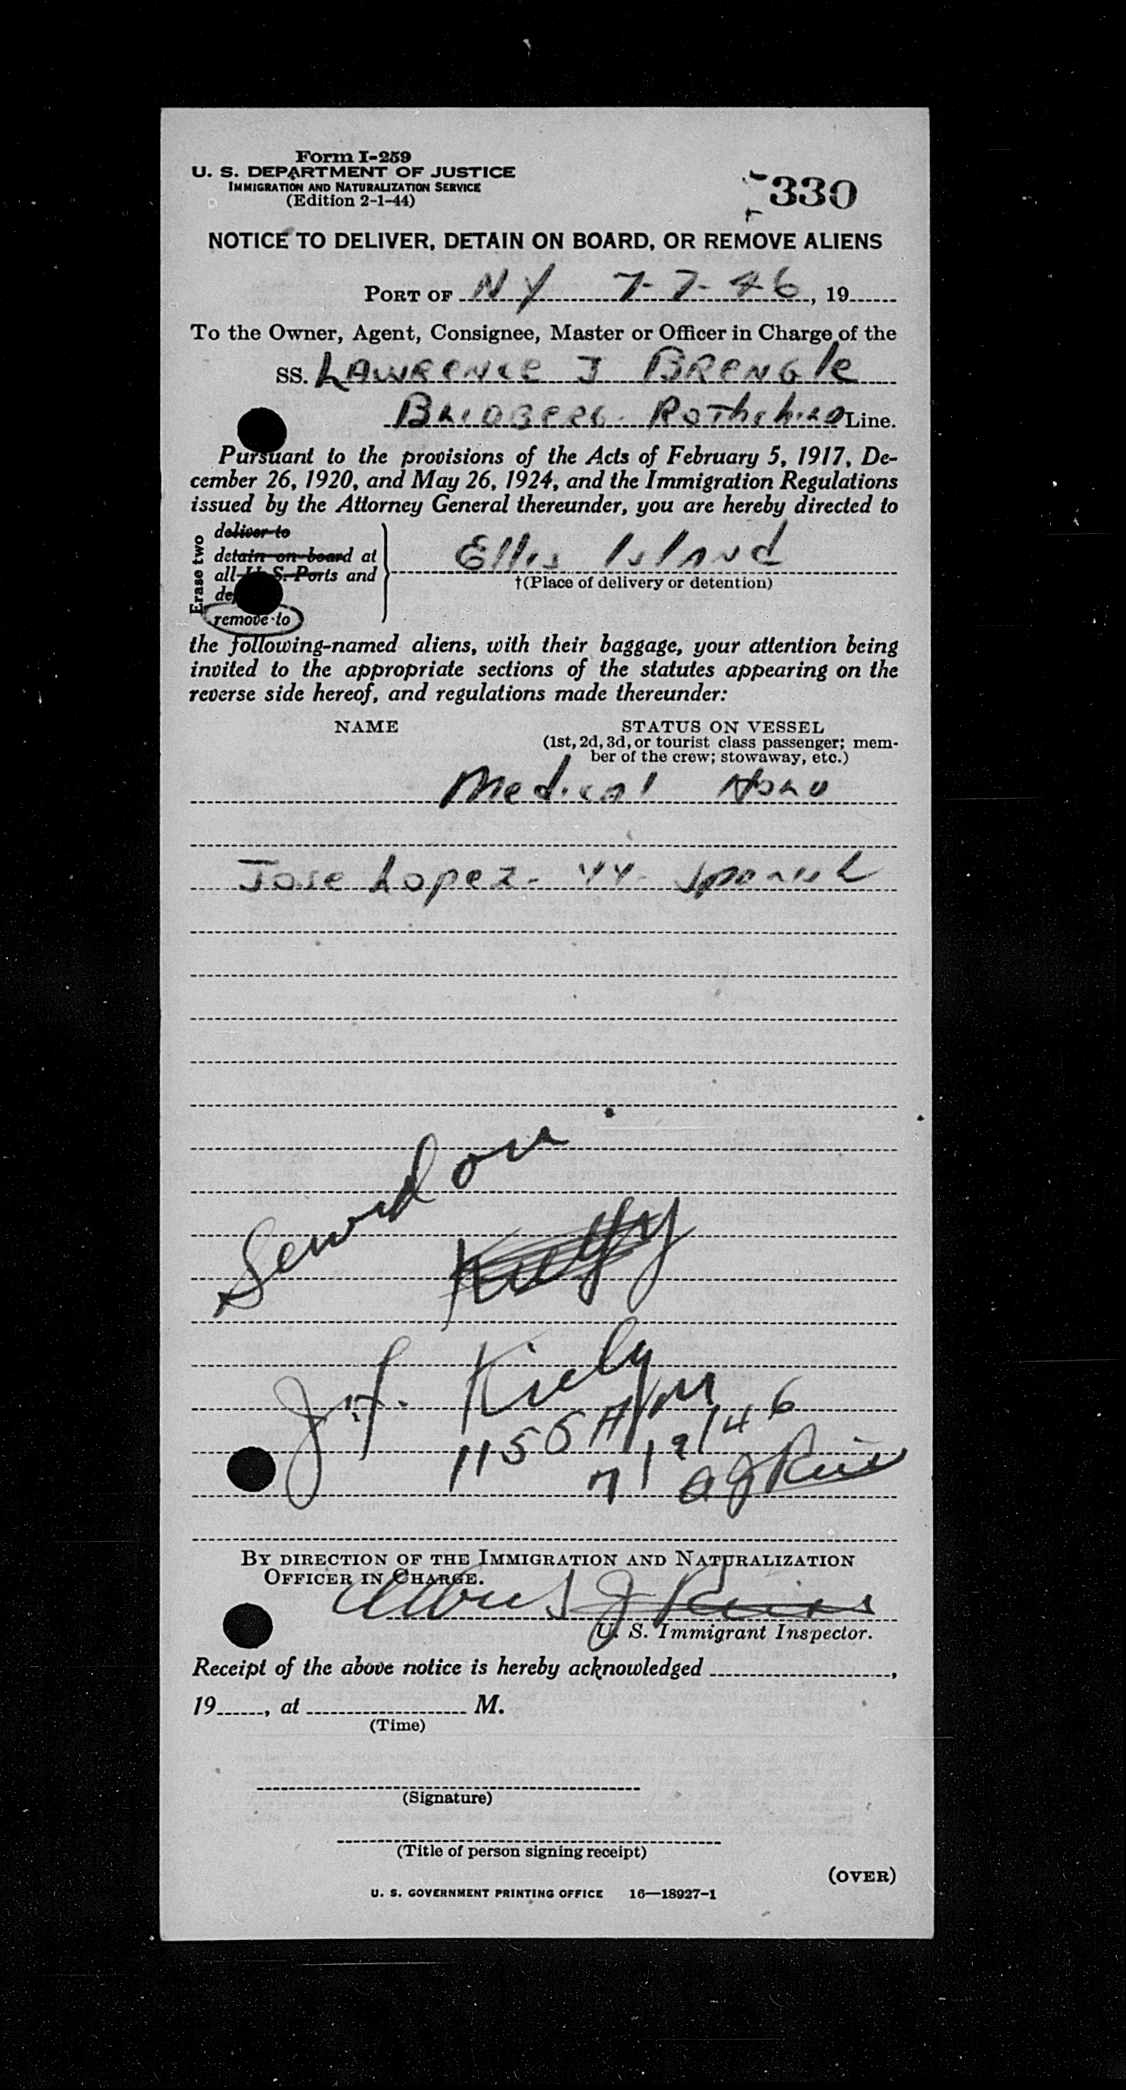 Form I-259
U. S. DEPARTMENT OF JUSTICE
IMMIGRATION AND NATURALIZATION SERVICE
(Edition 2-1-44)
330
NOTICE TO DELIVER, DETAIN ON BOARD, OR REMOVE ALIENS
PORT OF NY 7-7-46, 19
To the Owner, Agent, Consignee, Master or Officer in Charge of the
SS. LAWRENCE J BRENGLE
Line.
Pursuant to the provisions of the Acts of February 5, 1917, De-
cember 26, 1920, and May 26, 1924, and the Immigration Regulations
issued by the Attorney General thereunder, you are hereby directed to
Erase two
deliver to
detain on board at
all U. S. Ports and
remove to
Ellis Island
†(Place of delivery or detention)
the following-named aliens, with their baggage, your attention being
invited to the appropriate sections of the statutes appearing on the
reverse side hereof, and regulations made thereunder:
NAME
STATUS ON VESSEL
(1st, 2d, 3d, or tourist class passenger; mem-
ber of the crew; stowaway, etc.)
Medical
Jose Lopez - 44 - Spanish
J. F. Kiely
1155 AM
7/9/46
BY DIRECTION OF THE IMMIGRATION AND NATURALIZATION
OFFICER IN CHARGE.
U. S. Immigrant Inspector.
Receipt of the above notice is hereby acknowledged ,
19 , at M.
(Time)
(Signature)
(Title of person signing receipt)
(OVER)
U. S. GOVERNMENT PRINTING OFFICE 16—18927-1